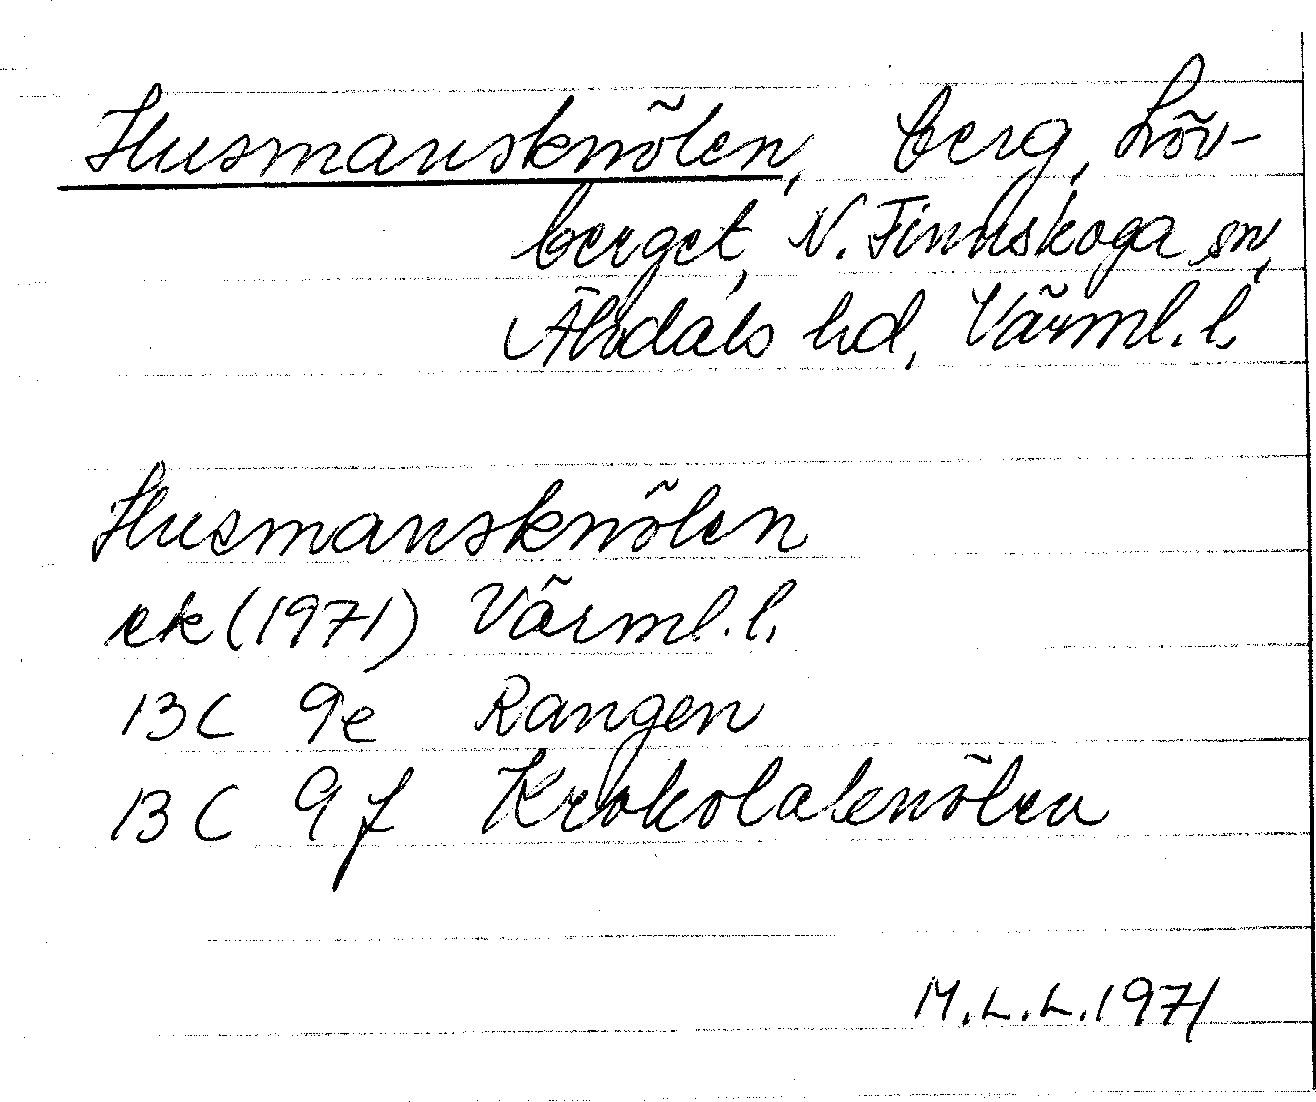 Husmansknölen, berg, Löv-
berget, N. Finnskoga sn,
Älvdals hd, Värml. l.
Husmansknölen
ek (1971) Värml. l.
13C 9e Rangen
13C 9f Krokolaknölen
M.L.L. 1971